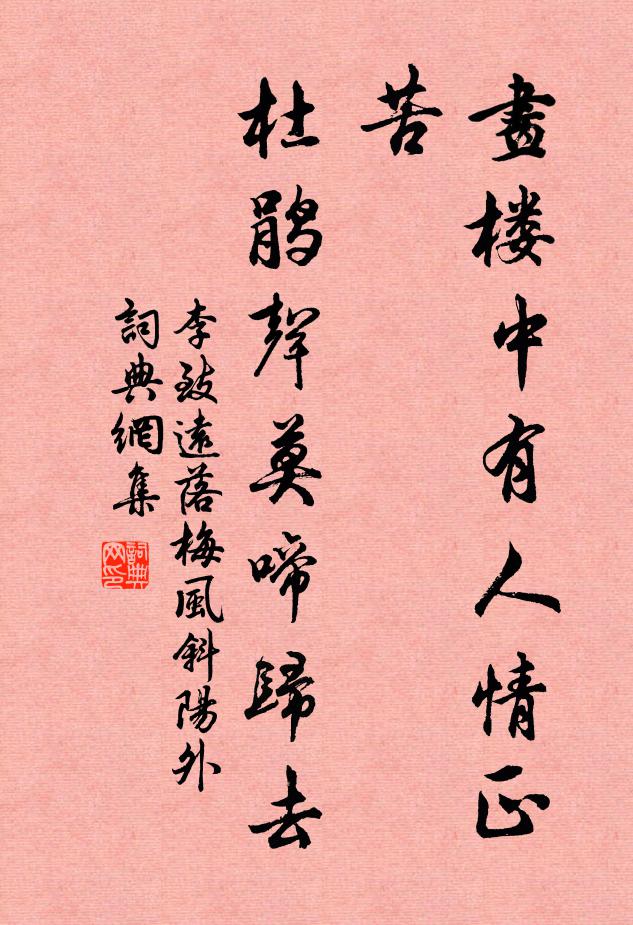 畫楼中有人情正
苦
杜鹃聲莫啼歸去
李致遠落梅風斜陽外
詞典網集
詞典网印